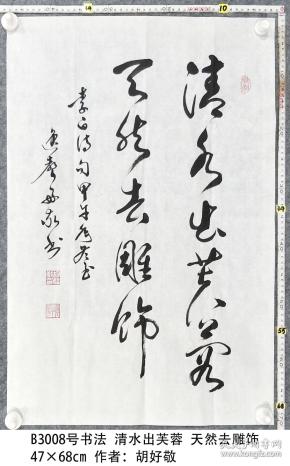 清水出芙蓉
天然去雕饰
李白诗句甲午
B3008号书法 清水出芙蓉 天然去雕饰
47×68cm 作者：胡好敬